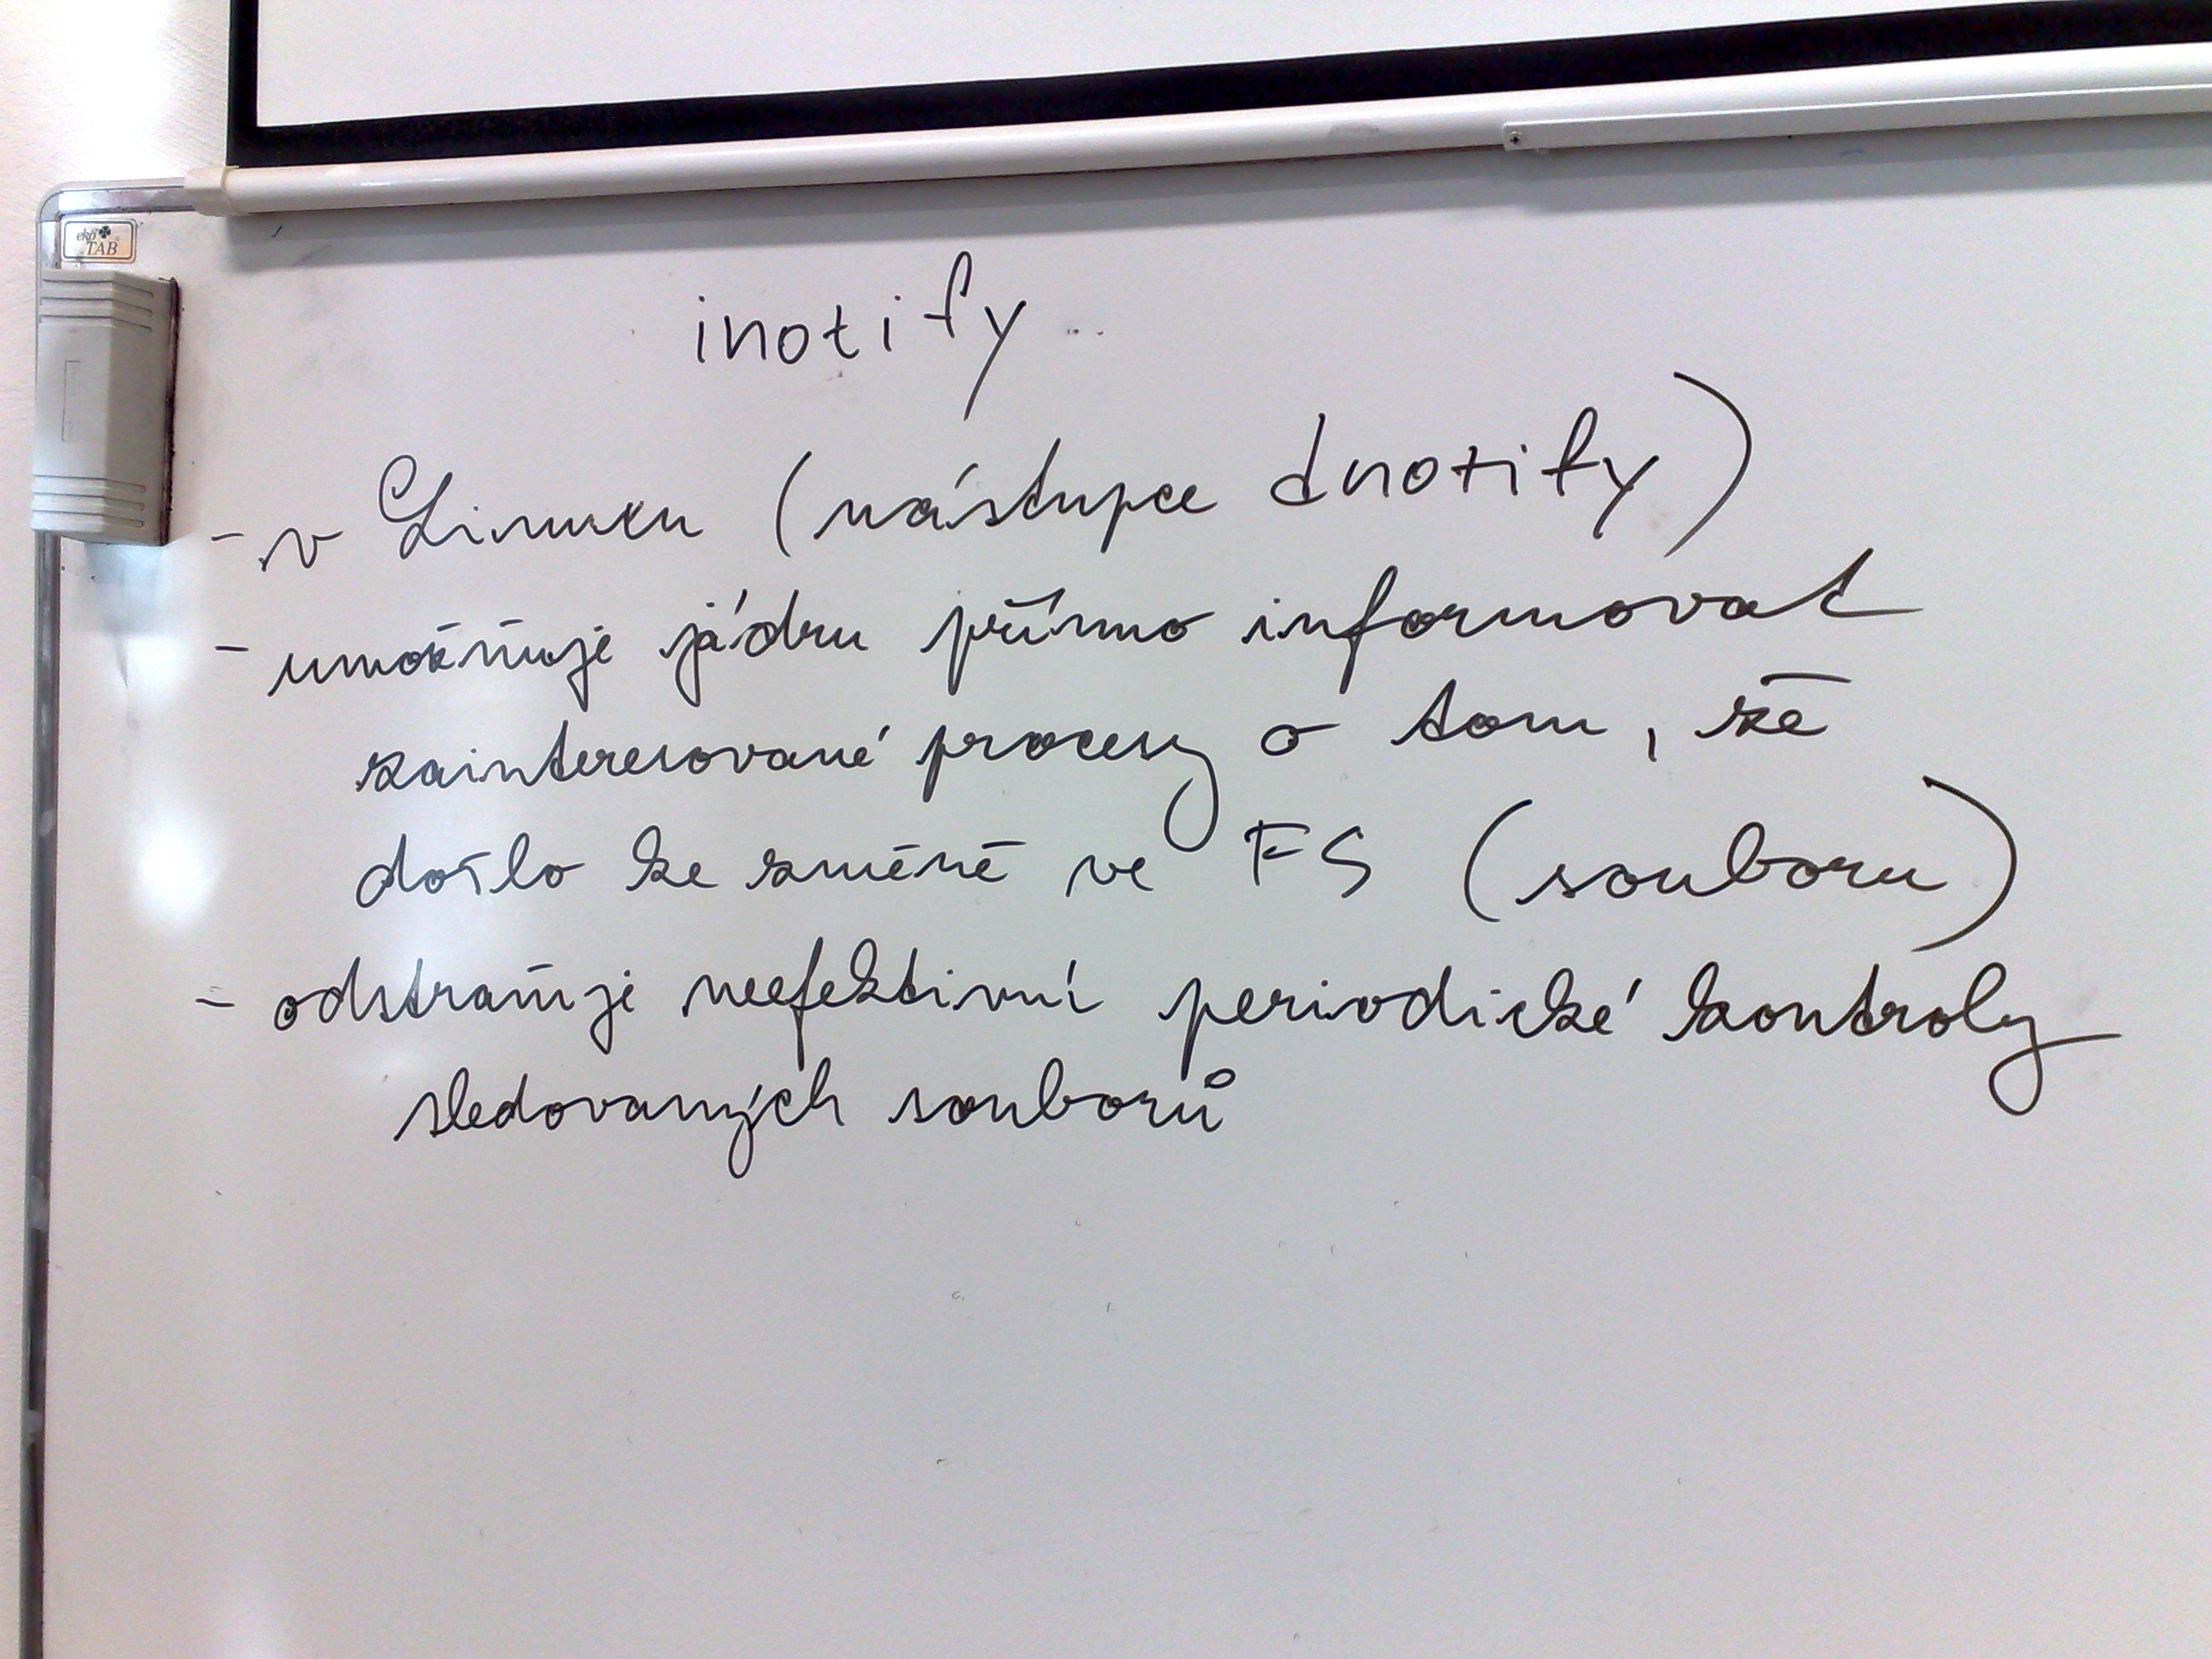 eko TAB
inotify
- v Linuxu (nástupce dnotify)
- umožňuje jádru přímo informovat
zainteresované procesy o tom, že
došlo ke změně ve FS (souboru)
- odstraňuje neefektivní periodické kontroly
sledovaných souborů